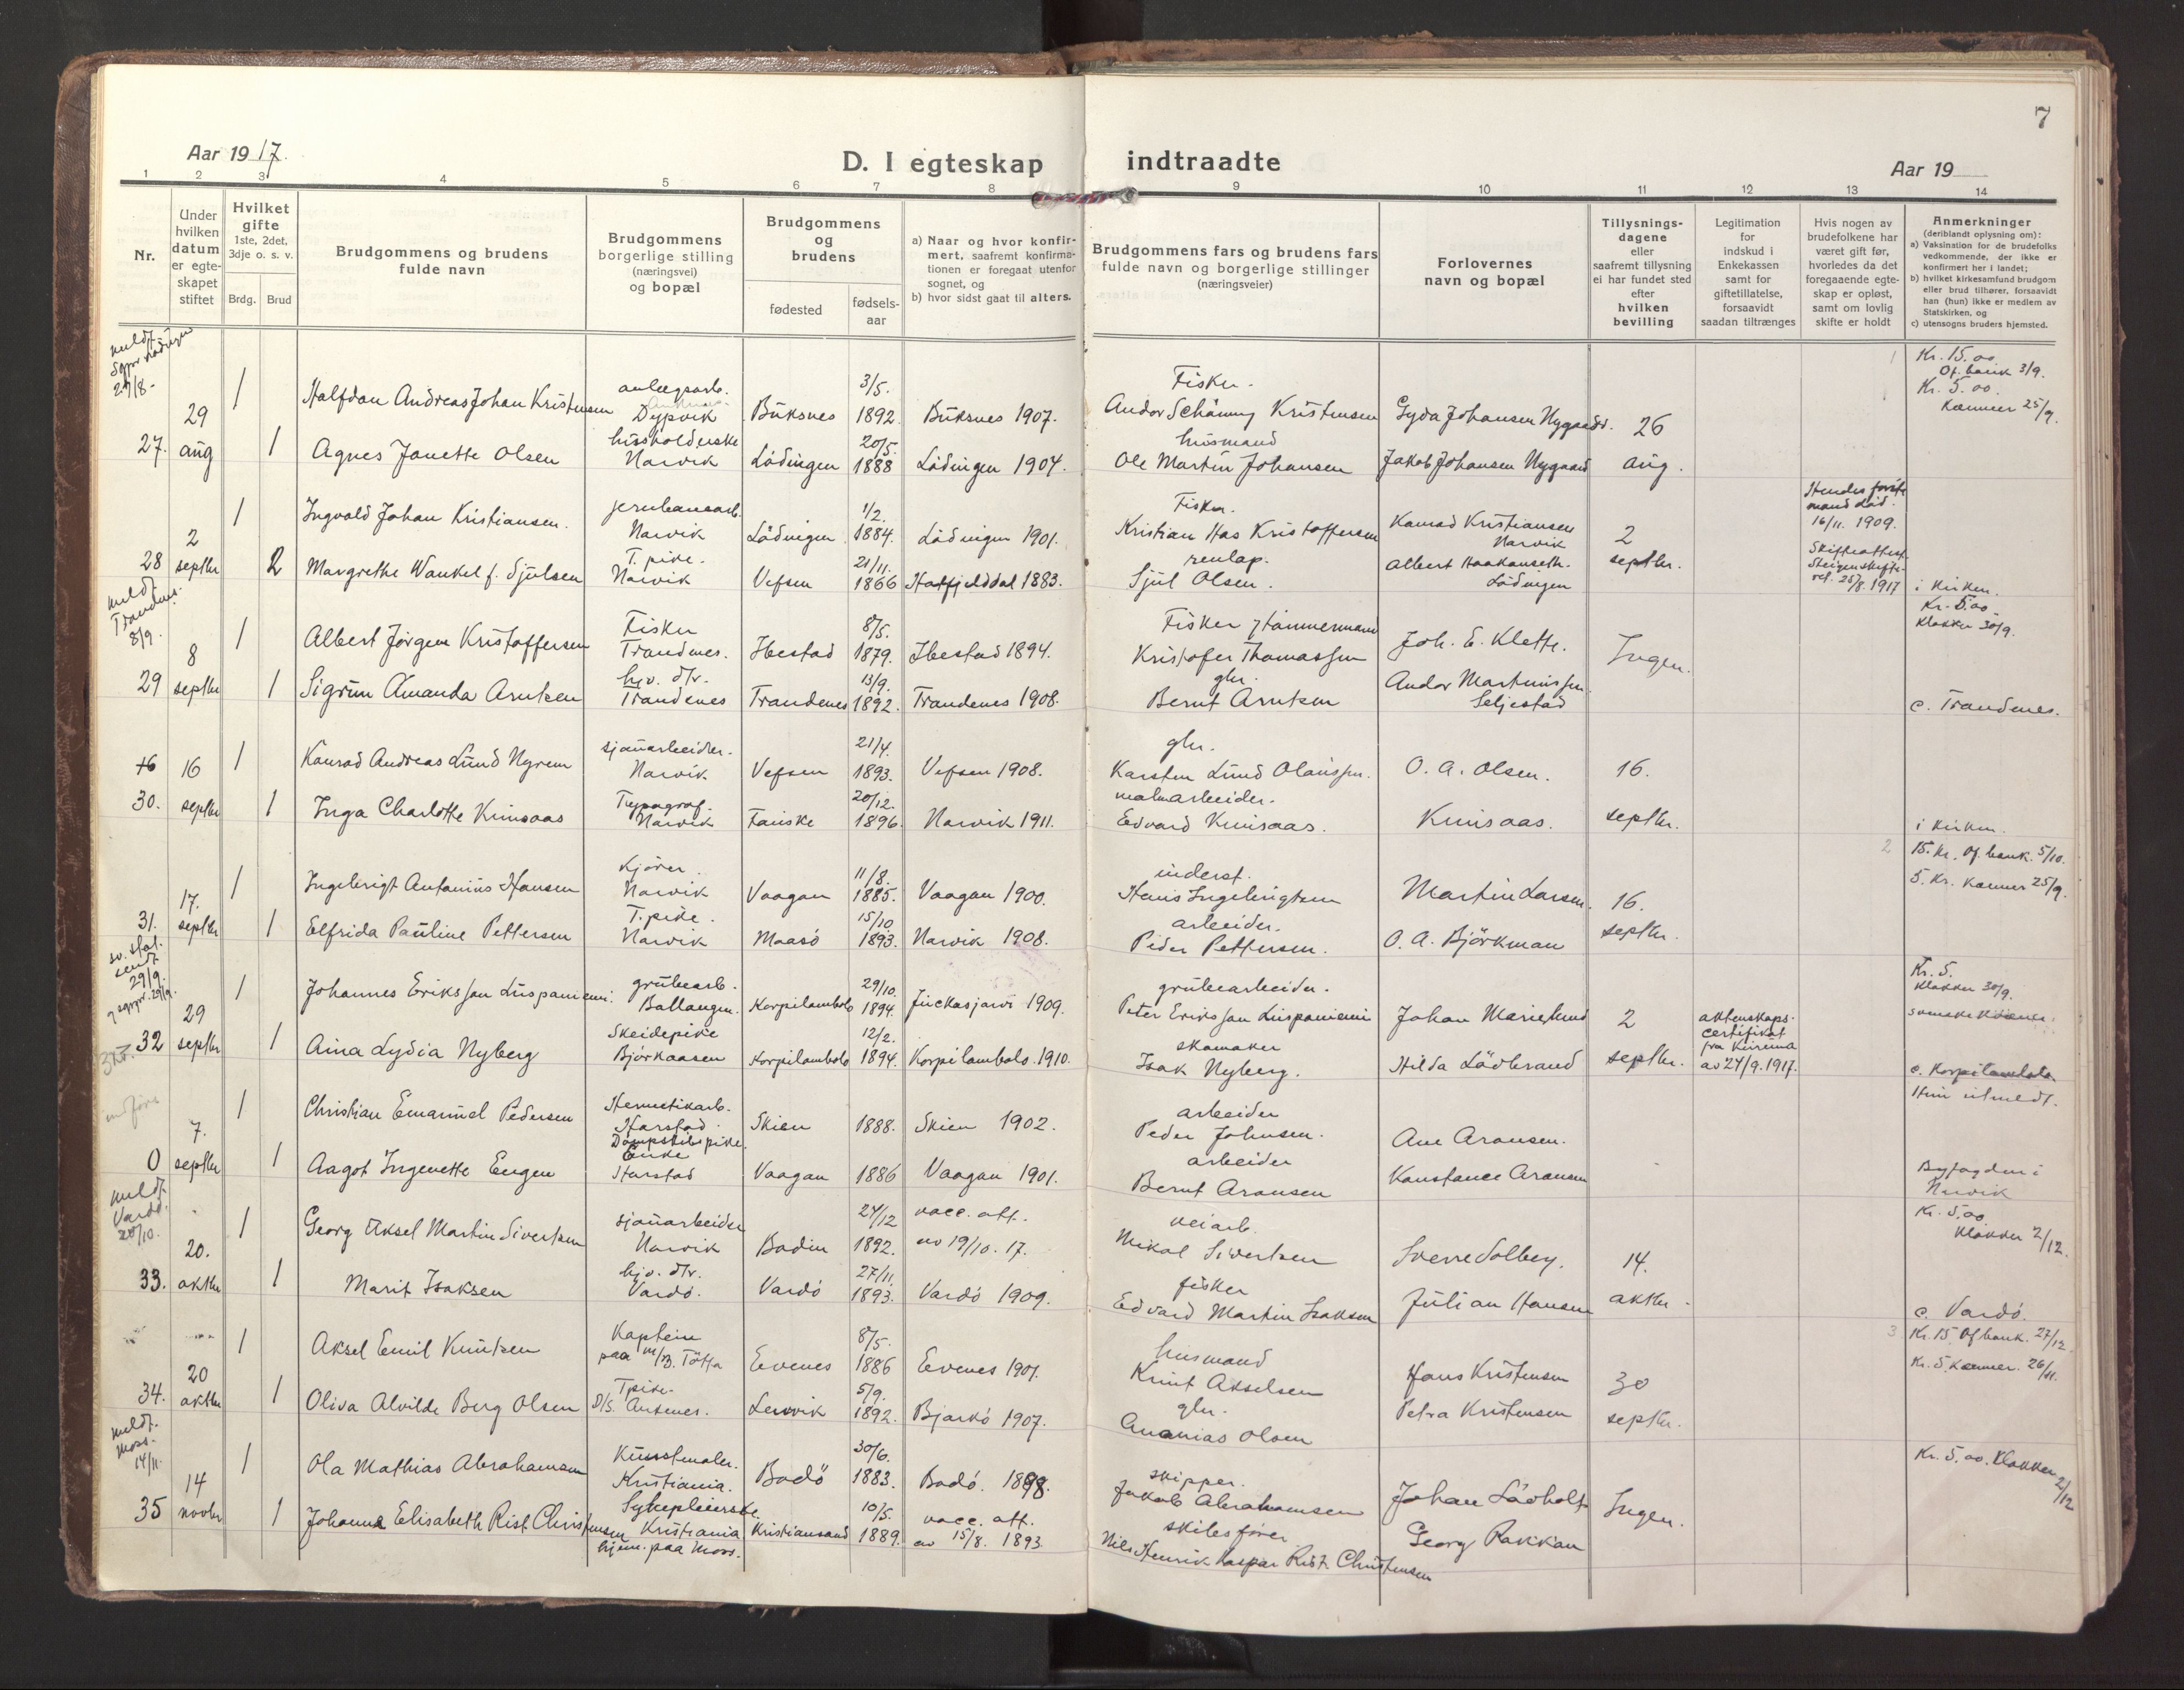 7
Aar 1917.
D. I egteskap indtraadte
Aar 19
1 2 3 4 5 6 7 8 9 10 11 12 13 14
Nr.
Under hvilken datum er egteskapet stiftet
Hvilket gifte 1ste, 2det, 3dje o. s. v.
Brdg. Brud
Brudgommens og brudens fulde navn
Brudgommens borgerlige stilling (næringsvei) og bopæl
Brudgommens og brudens
fødested
fødsels-aar
a) Naar og hvor konfir-
mert, saafremt konfirma-
tionen er foregaat utenfor
sognet, og
b) hvor sidst gaat til alters.
Brudgommens fars og brudens fars
fulde navn og borgerlige stillinger
(næringsveier)
Forlovernes
navn og bopæl
Tillysnings-
dagene
eller
saafremt tillysning
ei har fundet sted
efter
hvilken
bevilling
Legitimation
for
indskud i
Enkekassen
samt for
giftetillatelse,
forsaavidt
saadan tiltrænges
Hvis nogen av
brudefolkene har
været gift før,
hvorledes da det
foregaaende egte-
skap er opløst,
samt om lovlig
skifte er holdt
Anmerkninger
(deriblandt oplysning om):
a) Vaksination for de brudefolks
vedkommende, der ikke er
konfirmert her i landet;
b) hvilket kirkesamfund brudgom
eller brud tilhører, forsaavidt
han (hun) ikke er medlem av
Statskirken, og
c) utensogns bruders hjemsted.
meldt
29/8-
27. 29 aug
1 Halfdan Andreas Johan Kristensen anlegsarb. Dypvik 3/5. Buksnes 1892. Buksnes 1907.
1 Agnes Janette Olsen husholderske Narvik 20/5. Lödingen 1888 Lödingen 1904.
Fisker.
Andor Schänny Kristensen
husmand
Ole Martin Johansen
Gyda Johansen Nygaard.
Jakob Johansen Nygaard
26 aug.
1 Kr. 15.00
Of. bank 3/9.
Kr. 5.00.
Kæmner 25/9.
28 2 septbr
1 Ingvald Johan Kristiansen. jernbanearb. Narvik 1/2. Lödingen 1884. Lödingen 1901.
2 Margrethe Wankel f. Sjulsen T. pike. Narvik 21/11. Vefsen 1866 Hatfjelddal 1883.
Fisker.
Kristian Hos Kristoffersen
renlap.
Sjul Olsen.
Konrad Kristiansen
Narvik
Albert Haakonseth.
Lödingen
2 septbr.
Hendes første
mand död
16/11. 1909.
Skifteattest
Steigen skifte-
ret. 25/8. 1917
i kirken.
meldt
Trondenes.
8/9.
29 8 septbr
1 Albert Jörgen Kristoffersen Fisker Trondenes. 8/5. Ibestad 1879. Ibestad 1894.
1 Sigrun Amanda Arntzen hjv. dtr. Trondenes 13/9. Trondenes 1892. Trondenes 1908.
Fisker / tömmermand
Kristofer Thomassen
gbr.
Bernt Arntzen
Joh. E. Klette.
Andor Martinussen.
Seljestad
Ingen.
Kr. 5.00.
Klokker 30/9.
c. Trondenes.
30. 16 septbr
1 Konrad Andreas Lund Nyrem sjauarbeider. Narvik 21/4. Vefsen 1893. Vefsen 1908.
1 Inga Charlotte Kinsaas Typograf. Narvik 20/12. Fauske 1896. Narvik 1911.
gbr.
Karsten Lund Olaussen.
malmarbeider.
Edvard Kinsaas.
O. A. Olsen.
Kinsaas.
16. septbr.
i kirken.
31. 17. septbr
1 Ingebrigt Antonius Hansen Kjörer. Narvik 11/8. Vaagan 1885. Vaagan 1900.
1 Elfrida Pauline Pettersen T. pike. Narvik 15/10 Maasö 1893. Narvik 1908.
inderst.
Hans Ingebrigtsen
arbeider.
Peder Pettersen.
Martin Larsen.
O. A. Björkman
16. septbr.
2 15. Kr. Of. bank. 5/10.
5. Kr. Kæmner 25/9.
sendt
29/9.
32 29 septbr
1 Johannes Eriksson Luspaniemi. grubearb. Ballangen. 29/10. Korpilombolo 1894. Juckasjärvi 1909.
1 Aina Lydia Nyberg Skeidepike Björkaasen 12/2. Korpilombolo 1894. Korpilombolo. 1910.
grubearbeider.
Peter Eriksson Luspaniemi
skomaker
Isak Nyberg.
Johan Marielund
Hilda Lövbrand
2 septbr.
aktenskaps-
certifikat
fra Kiruna
av 24/9. 1917.
Kr. 5.
Klokker 30/9.
c. Korpilombolo
0 7. septbr
1 Christian Emanuel Pedersen Hermetikarb. Harstad. Skien 1888. Skien 1902.
1 Aagot Ingenette Engen Dampskibspike. Enke Harstad Vaagan 1886 Vaagan 1901.
arbeider
Peder Johnsen.
arbeider
Bernt Aronsen
Ane Aronsen.
Konstance Aronsen
Hun utmeldt.
Byfogden i
Narvik
meldt.
Vardö.
20/10.
33. 20. oktbr
1 Georg Aksel Martin Sivertsen sjauarbeider Narvik 24/12 Bodin 1892. vacc. att. av 19/10. 17.
1 Marit Isaksen hjv. dtr. Vardö. 27/11. Vardö 1893. Vardö 1909.
veiarb.
Mikal Sivertsen
fisker
Edvard Martin Isaksen
Sverre Solberg.
Julian Hansen
14. oktbr.
Kr. 5.00
Klokker 2/12.
c. Vardö.
34. 20 oktbr
1 Aksel Emil Knutsen Kaptein paa M/B. Tötta 8/5. Evenes 1886 Evenes 1901.
1 Oliva Alvilde Berg Olsen Tpike. D/S. Ankenes. 5/9. Lenvik 1892. Bjarkö 1907.
husmand
Knut Akselsen
gbr.
Ananias Olsen
Hans Kristensen
Petra Kristensen
30 septbr.
3 Kr. 15 Of bank. 27/12.
Kr. 5. Kæmner. 26/11.
meldt.
Moss.
14/11.
35 14 novbr
1 Ola Mathias Abrahamsen Kunstmaler. Kristiania. 30/6. Bodö 1883. Bodö. 1898.
1 Johanna Elisabeth Rist Christensen Sykepleierske. Kristiania hjem. paa Moss. 10/5. Kristiansand 1889. vacc. att. av 15/8. 1893
skipper.
Jakob Abrahamsen
skibsförer
Nils Henrik Kaspar Rist Christensen
Johan Lövholt
Georg Rakkan
Ingen.
Kr. 5.00. Klokker 2/12